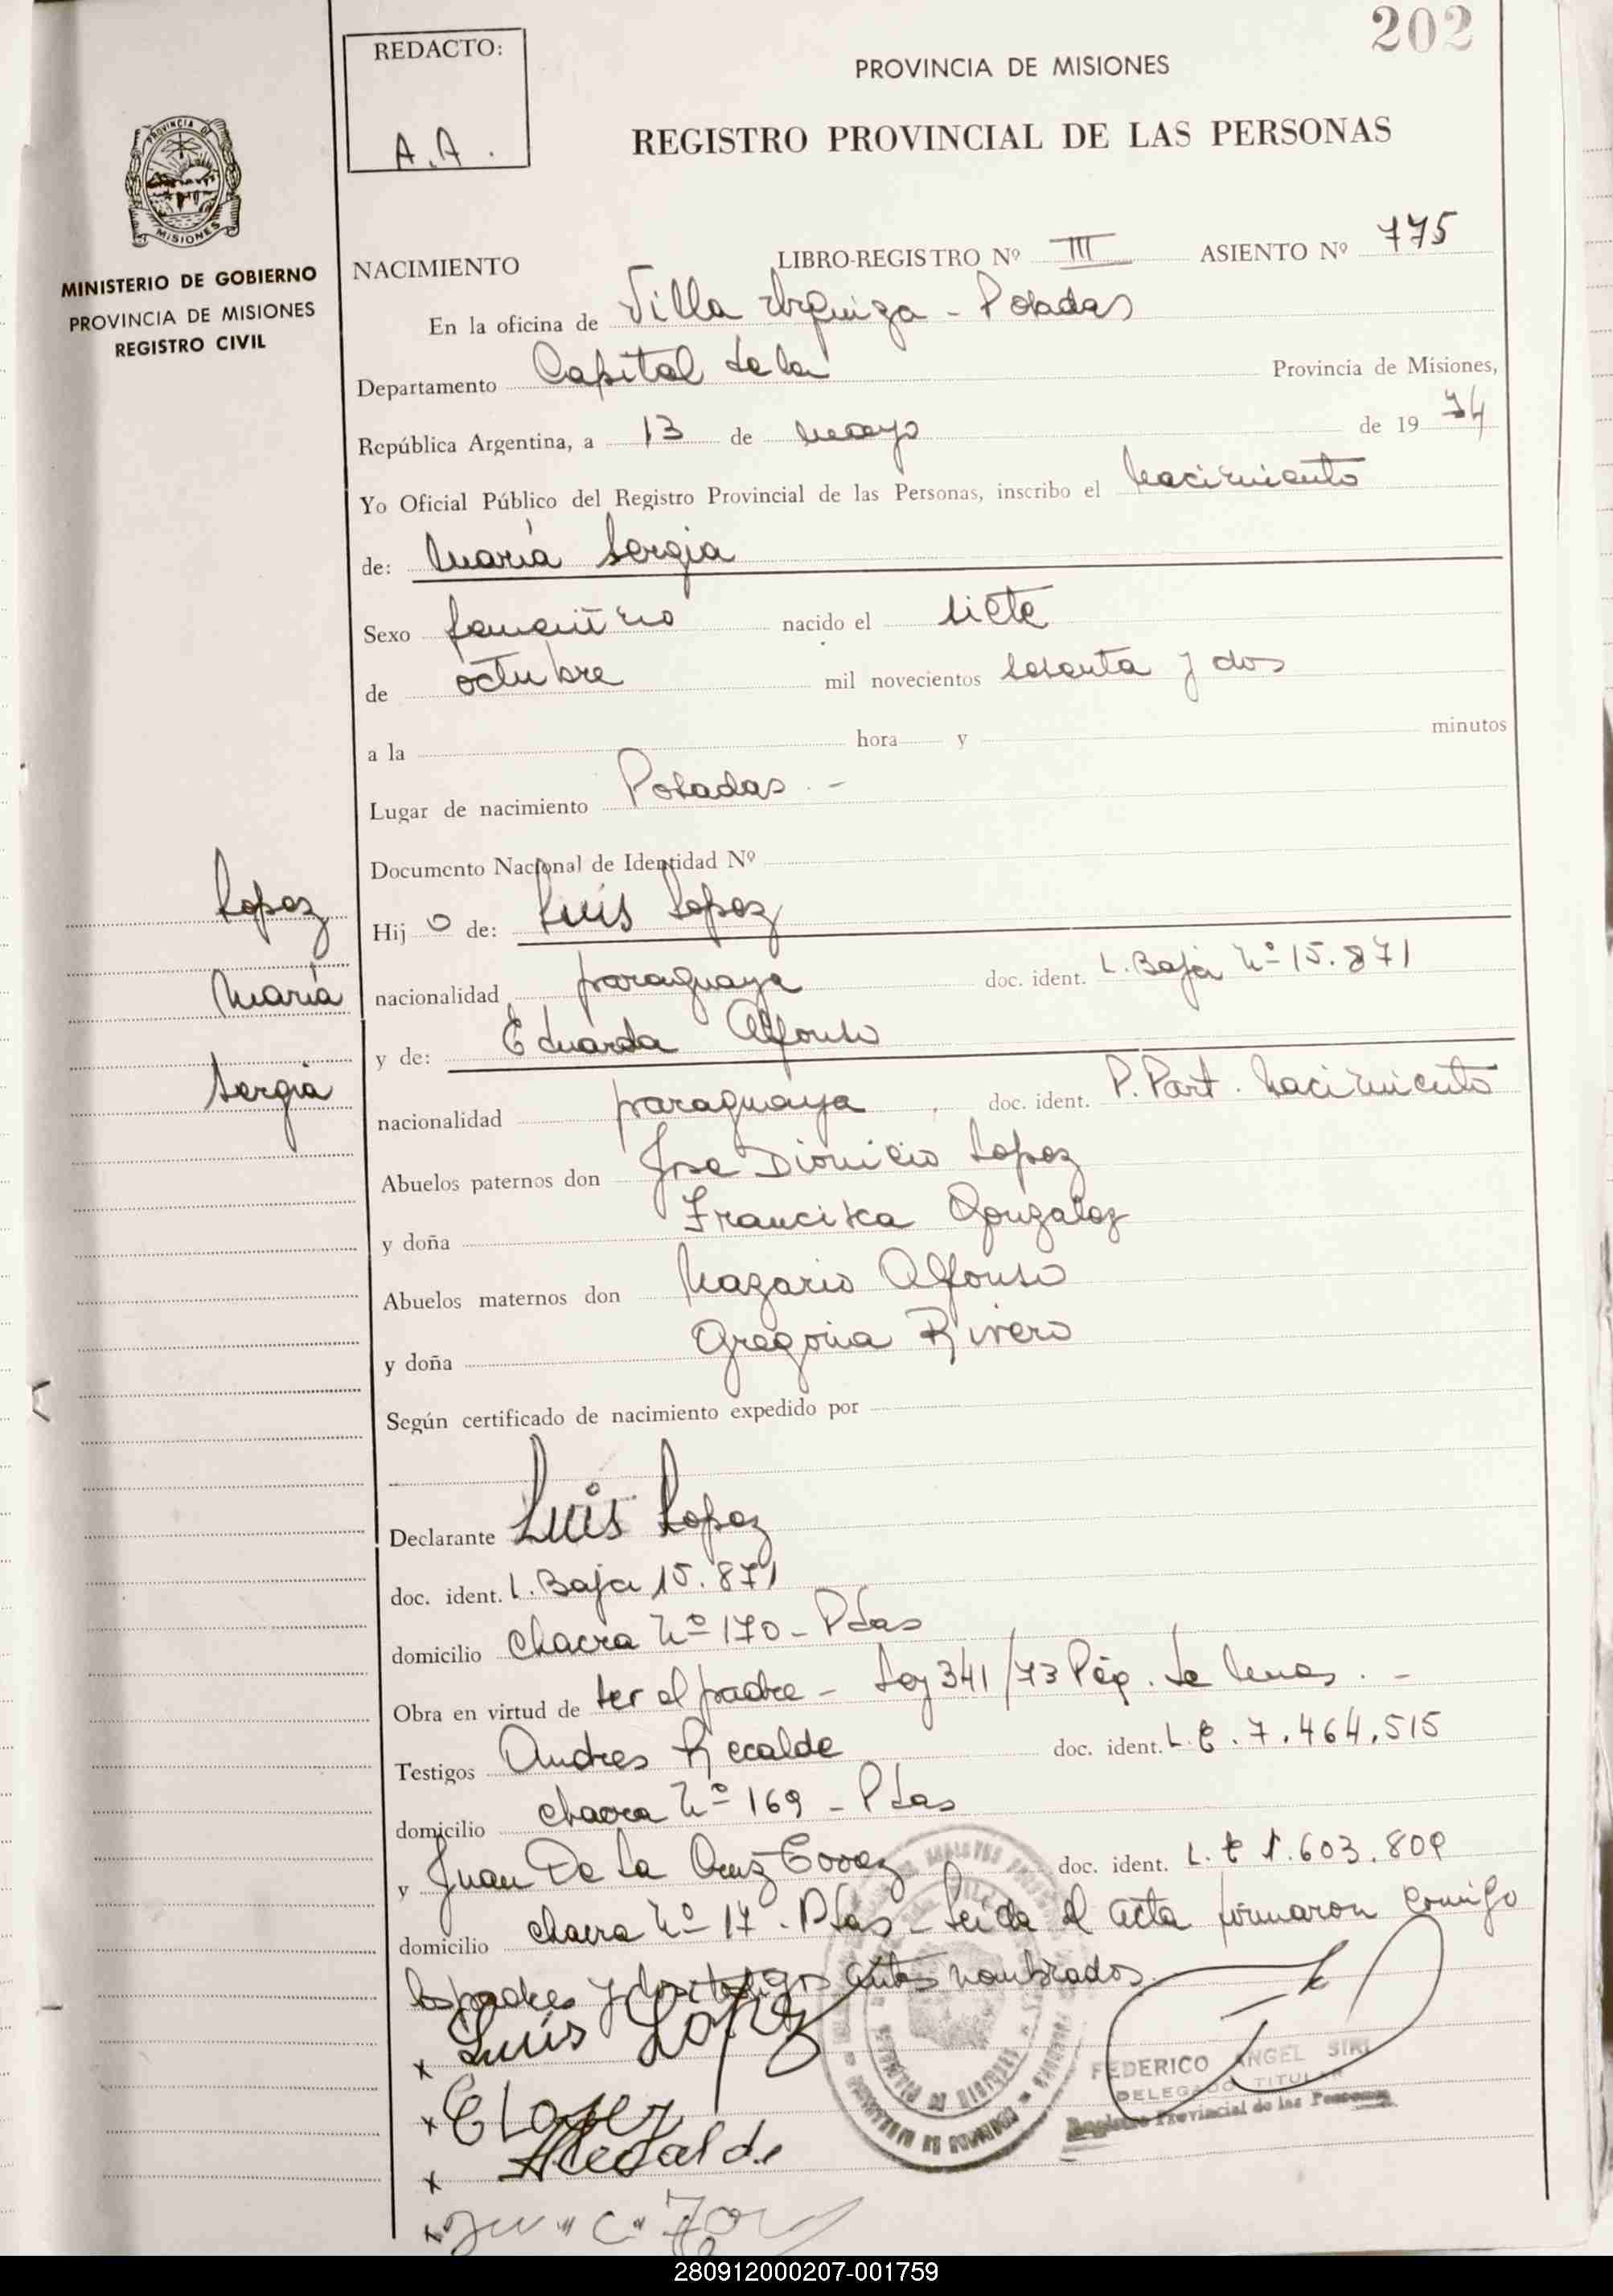 202
REDACTO:
A.A.
PROVINCIA DE MISIONES
REGISTRO PROVINCIAL DE LAS PERSONAS
PROVINCIA DE
MISIONES
MINISTERIO DE GOBIERNO
PROVINCIA DE MISIONES
REGISTRO CIVIL
NACIMIENTO LIBRO-REGISTRO Nº III ASIENTO Nº 775
En la oficina de Villa Urquiza - Posadas
Departamento Capital de la Provincia de Misiones,
República Argentina, a 13 de mayo de 1974
Yo Oficial Público del Registro Provincial de las Personas, inscribo el nacimiento
de: María Sergia
Sexo femenino nacido el siete
de octubre mil novecientos sesenta y dos
a la hora y minutos
Lugar de nacimiento Posadas. -
Documento Nacional de Identidad Nº
Lopez
Hijo de: Luis Lopez
María
nacionalidad paraguaya doc. ident. L. Baja Nº 15.871
y de: Eduarda Alfonso
Sergia
nacionalidad paraguaya doc. ident. P. Part. Nacimiento
Abuelos paternos don Jose Dionicio Lopez
y doña Francisca Gonzalez
Abuelos maternos don Nazario Alfonso
y doña Gregoria Rivero
Según certificado de nacimiento expedido por
Declarante Luis Lopez
doc. ident. L. Baja 15.871
domicilio Chacra Nº 170 - Pdas
Obra en virtud de ser el padre - Ley 341/73
Testigos Andres Recalde doc. ident. L.E. 7.464.515
domicilio chacra Nº 169 - Pdas
y Juan De La Cruz doc. ident. L.E 1.603.809
domicilio chacra Nº 17. Pdas - Leida el acta firmaron conmigo
los padres y dos testigos antes nombrados.
x Luis Lopez
x E Lopez
x ARecalde
FEDERICO ANGEL SIRI
DELEGADO TITULAR
Registro Provincial de las Personas
280912000207-001759